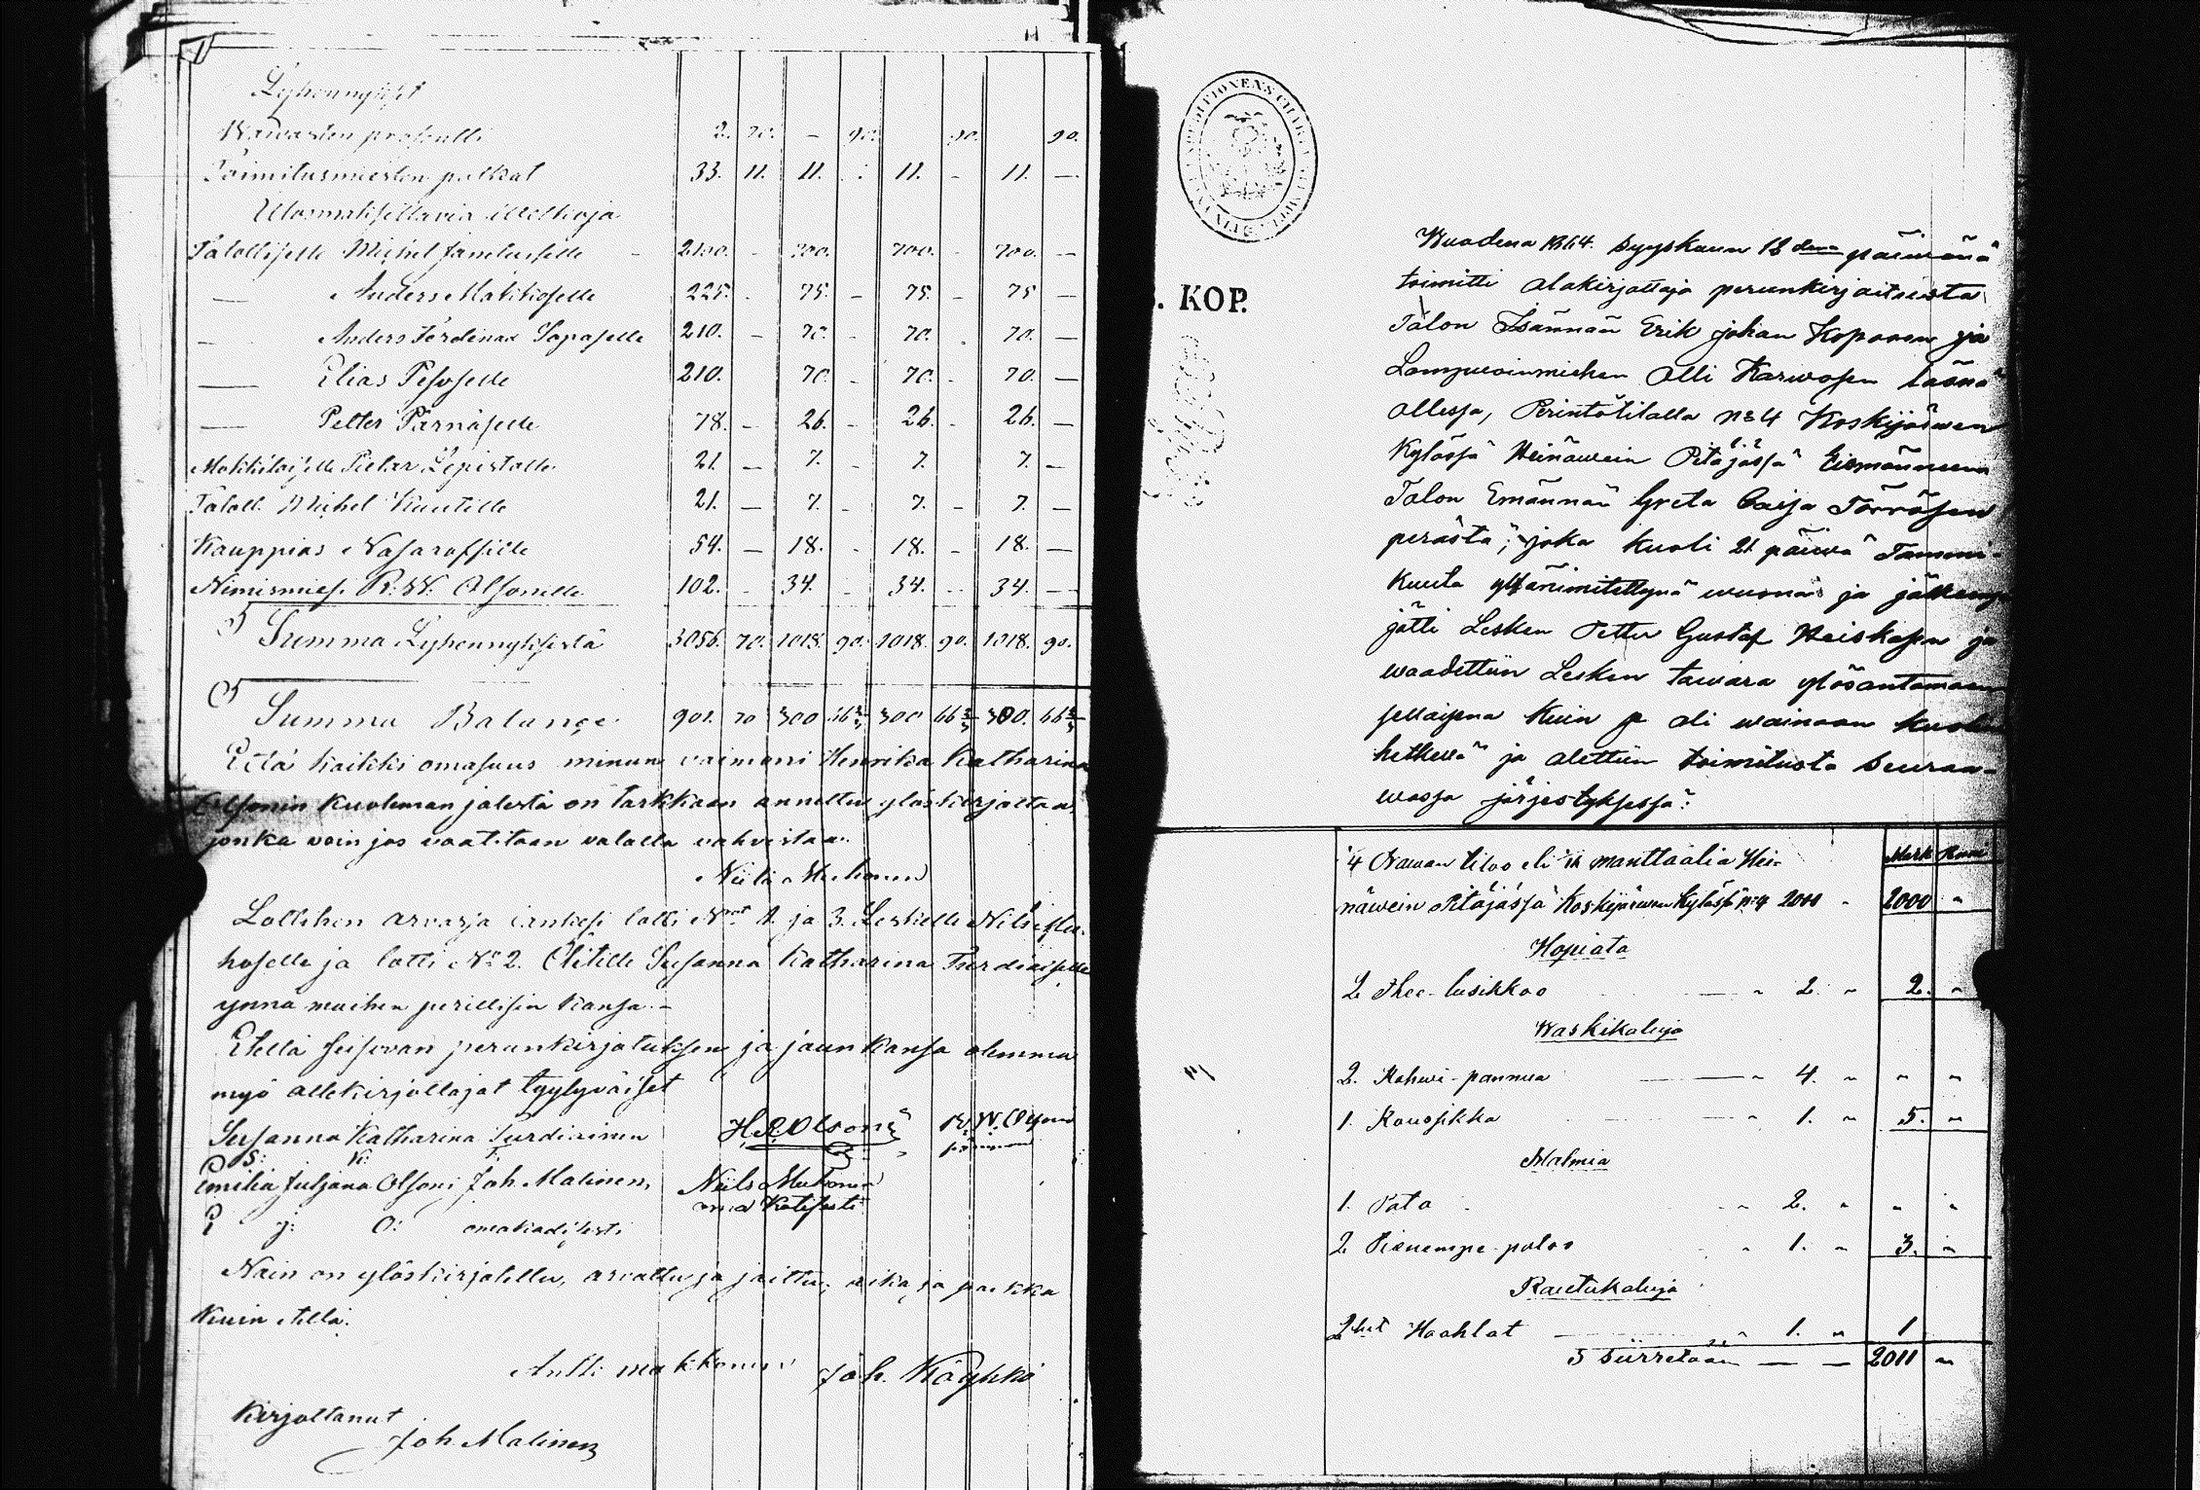 Lyhennykset
Waivasten prosentti 2. 70. – 90. 90. 90.
Toimitusmiesten palkat 33. 11. 11. – 11. – 11. –
Ulosmaksettavia Welkoja
Talolliselle Michel 2100. – 700. 700. – 700. –
— Anders Makkoselle 225. – 75. – 75. – 75 –
— Anders Ferdinad Saposelle 210. – 70. – 70. 70. –
— Elias Pesoselle 210. 70. – 70. – 70. –
— Petter Pärnäselle 78. – 26. – 26. – 26. –
Mökkiläiselle Pietar Lepistölle 21. – 7. – 7. 7. –
Taloll. Michel Kuutille 21. – 7. – 7. – 7. –
Kauppias Nasaroffille 54. – 18. – 18. – 18. –
Nimismies. R. W. Olsonille 102. – 34. – 34. – 34. –
Summa Lyhennyksistä 3056. 70. 1018. 90. 1018. 90. 1018. 90.
Summa Balance 901. 70 300 66 2/3 300 66 2/3 300. 66 2/3
Että kaikki omasuus minun vaimoni Henrika Katharina
Olsonin kuoleman jälestä on tarkkaan annettu ylöskirjattaa,
jonka voin jos vaatitaan valalla vahvistaa.
Niils Muhonen
Lottihen arvasja lankesi lotti N 1. ja 3. Leskelle Nils Mu-
hoselle ja lotti N:o 2. Äitille Susanna Katharina Turdiaiselle
ynnä muihen perillisin kansa. –
Etellä seisovan perunkirjotuksen ja jaun kansa olemma
myö allekirjottajat tyytyväiset
Susanna Katharina Turdiainen H. R. Olsoni R. W. Olsoni
S: K: T:
Emilia Juljana Olsoni Joh. Malinen, Niils Muhonen
E j: O: omakädisesti
Näin on ylöskirjotettu, arvattu ja jaittu, aika ja paikka
kuin etellä.
Antti makkonen Joh. Käyhkö
Kirjottanut
Joh Malinen
. KOP.
Wuodena 1864. Syyskuun 18 dena päivänä
toimitti alakirjottaja perunkirjoituista
Talon Isännän Erik johan Koposen ja
Lampuoinmiehen Olli Karwosen läsnä
ollessa, Perintötilalla No 4 Koskijärwen
Kylässä Heinäwein Pitäjässä Eismänneen
Talon Emännän Greta Caisa Törrösen
perästä, joka kuoli 21 päiwä Tammi-
kuuta ylfänimitettynä wuonna ja jälkeensä
jätti Lesken Petter Gustaf Heiskasen ja
waadettiin Lesken tawara ylösantamaan
sellaisena kuin se oli wainaan kuolin
hetkellä ja alettiin toimitusta Seuraa-
wassa järjestyksessä:
Mark Kope
4 Äwran tiloo eli manttaalia Hei-
näwein Pitäjässä Koskijärwen Kylässä No 4 2000 „ 2000 „
Hopiata
2 Thee-lusikkoo — „ 2. „ 2. „
Waskikaluja
2. Kahwi-pannua — „ 4. „ „ „
1. Kousikka „ 1. „ 5. „
Malmia
1. Pata „ 2. „ „ „
2 Pienempe patoo „ 1. „ 3. „
Rautakaluja
2 Haahlat — „ 1. „ 1
S Siirretään — — 2011 „